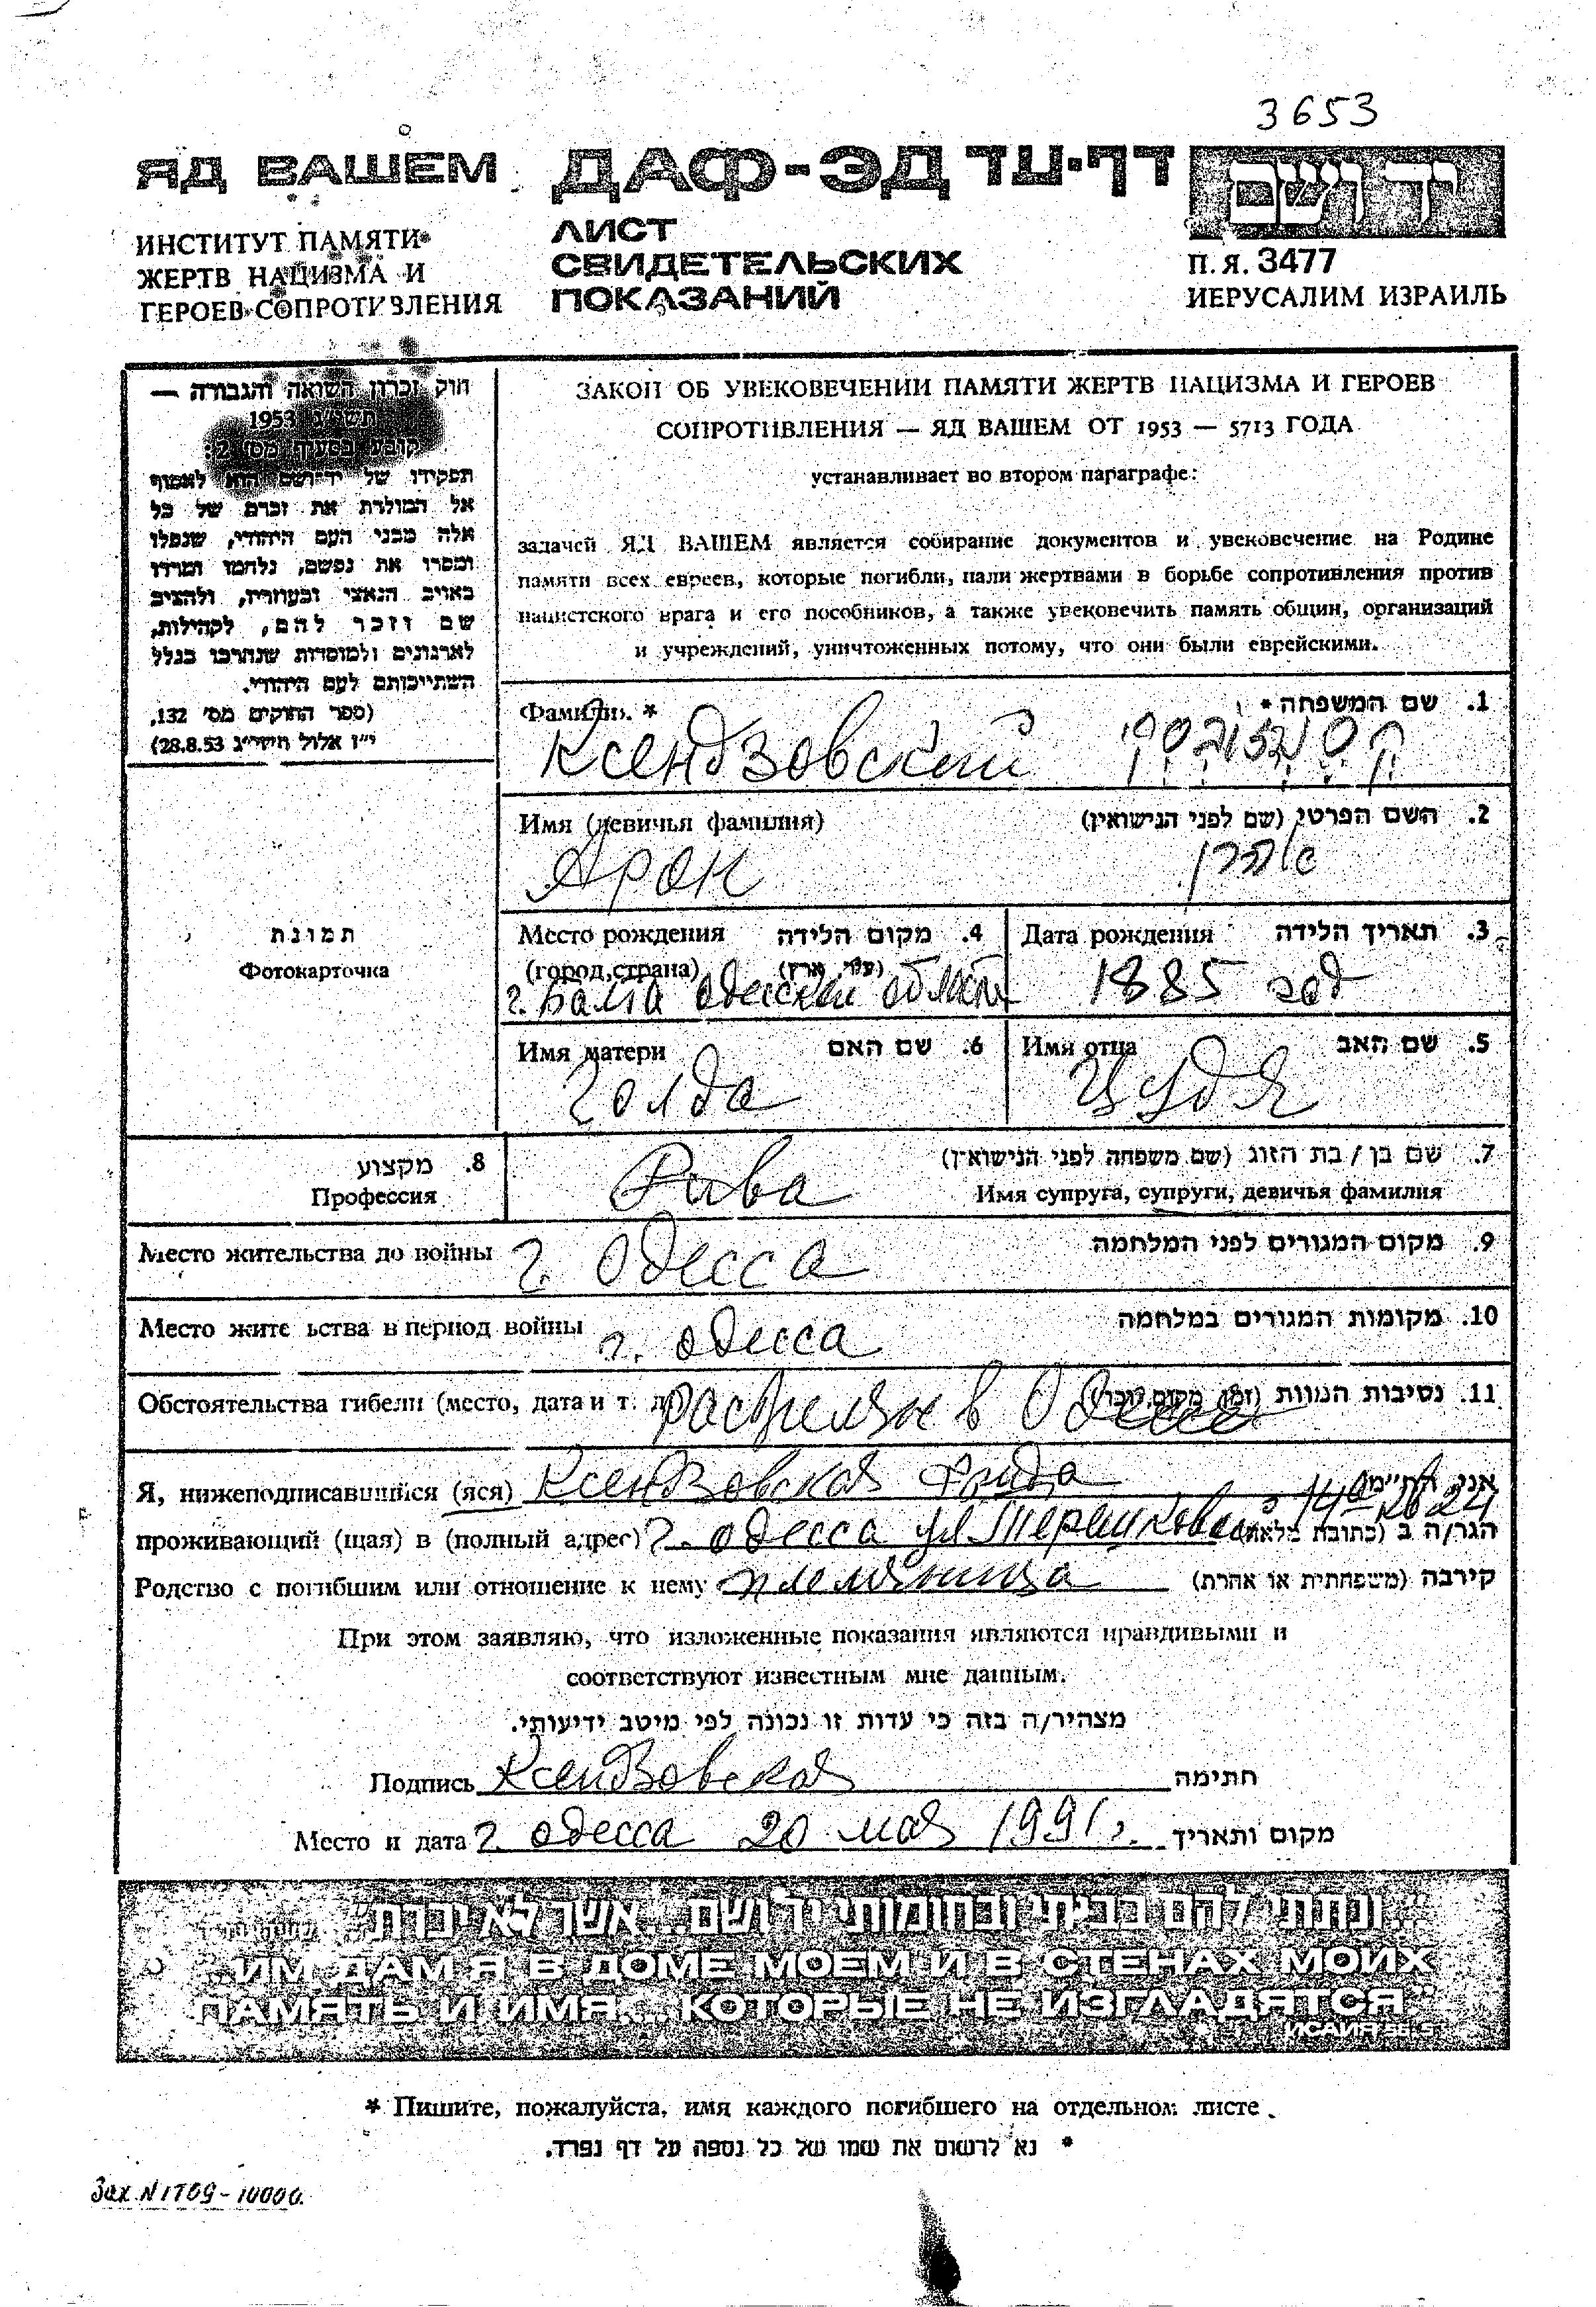 3653
ЯД ВАШЕМ ДАФ-ЭД דף-עד יד ושם
ИНСТИТУТ ПАМЯТИ
ЖЕРТВ НАЦИЗМА И
ГЕРОЕВ СОПРОТИВЛЕНИЯ
ЛИСТ
СВИДЕТЕЛЬСКИХ
ПОКАЗАНИЙ
П. Я. 3477
ИЕРУСАЛИМ ИЗРАИЛЬ
חוק זכרון השואה והגבורה —
תשי"ג 1953
קובע בסעיף מס' 2:
תפקידו של יד־ושם הוא לאסוף
אל המולדת את זכרם של כל
אלה מבני העם היהודי, שנפלו
ומסרו את נפשם, נלחמו ומרדו
באויב הנאצי ובעוזריו, ולהציב
שם וזכר להם, לקהילות,
לארגונים ולמוסדות שנחרבו בגלל
השתייכותם לעם היהודי.
(ספר החוקים מס' 132,
י"ז אלול תשי"ג 28.8.53)
ЗАКОН ОБ УВЕКОВЕЧЕНИИ ПАМЯТИ ЖЕРТВ НАЦИЗМА И ГЕРОЕВ
СОПРОТИВЛЕНИЯ — ЯД ВАШЕМ ОТ 1953 — 5713 ГОДА
устанавливает во втором параграфе:
задачей ЯД ВАШЕМ является собирание документов и увековечение на Родине
памяти всех евреев, которые погибли, пали жертвами в борьбе сопротивления против
нацистского врага и его пособников, а также увековечить память общин, организаций
и учреждений, уничтоженных потому, что они были еврейскими.
Фамилия. * 1. שם המשפחה *
Ксендзовский
Имя (девичья фамилия) 2. השם הפרטי (שם לפני הנישואין)
Арон אהרן
תמונת
Фотокарточка
Место рождения 4. מקום הלידה
(город, страна) (עיר, ארץ)
г. Балта одесской област
Дата рождения 3. תאריך הלידה
1885 год
Имя матери 6. שם האם
Голда
Имя отца 5. שם האב
Иудя
8. מקצוע
Профессия
7. שם בן / בת הזוג (שם משפחה לפני הנישואין)
Имя супруга, супруги, девичья фамилия
Рива
Место жительства до войны г. Одесса 9. מקום המגורים לפני המלחמה
Место жите ьства в период войны г. одесса 10. מקומות המגורים במלחמה
Обстоятельства гибели (место, дата и т. д.) растрелян в Одессе 11. נסיבות המוות (זמן, מקום, וכו')
Я, нижеподписавшийся (яся) Ксендзовская Фрида אני, הח"מ
проживающий (щая) в (полный адрес) г. одесса ул Терешковой הגר/ה ב (כתובת מלאה)
Родство с погибшим или отношение к нему племяница קירבה (משפחתית או אחרת)
При этом заявляю, что изложенные показания являются правдивыми и
соответствуют известным мне данным.
מצהיר/ה בזה כי עדות זו נכונה לפי מיטב ידיעותי.
Подпись Ксендзовская חתימה
Место и дата г. одесса 20 мая 1991 г. מקום ותאריך
"...ונתתי להם בביתי ובחומותי יד ושם... אשר לא יכרת"
"ИМ ДАМ Я В ДОМЕ МОЕМ И В СТЕНАХ МОИХ
ПАМЯТЬ И ИМЯ... КОТОРЫЕ НЕ ИЗГЛАДЯТСЯ"
* Пишите, пожалуйста, имя каждого погибшего на отдельном листе.
* נא לרשום את שמו של כל נספה על דף נפרד.
Зак N 1709-10000.